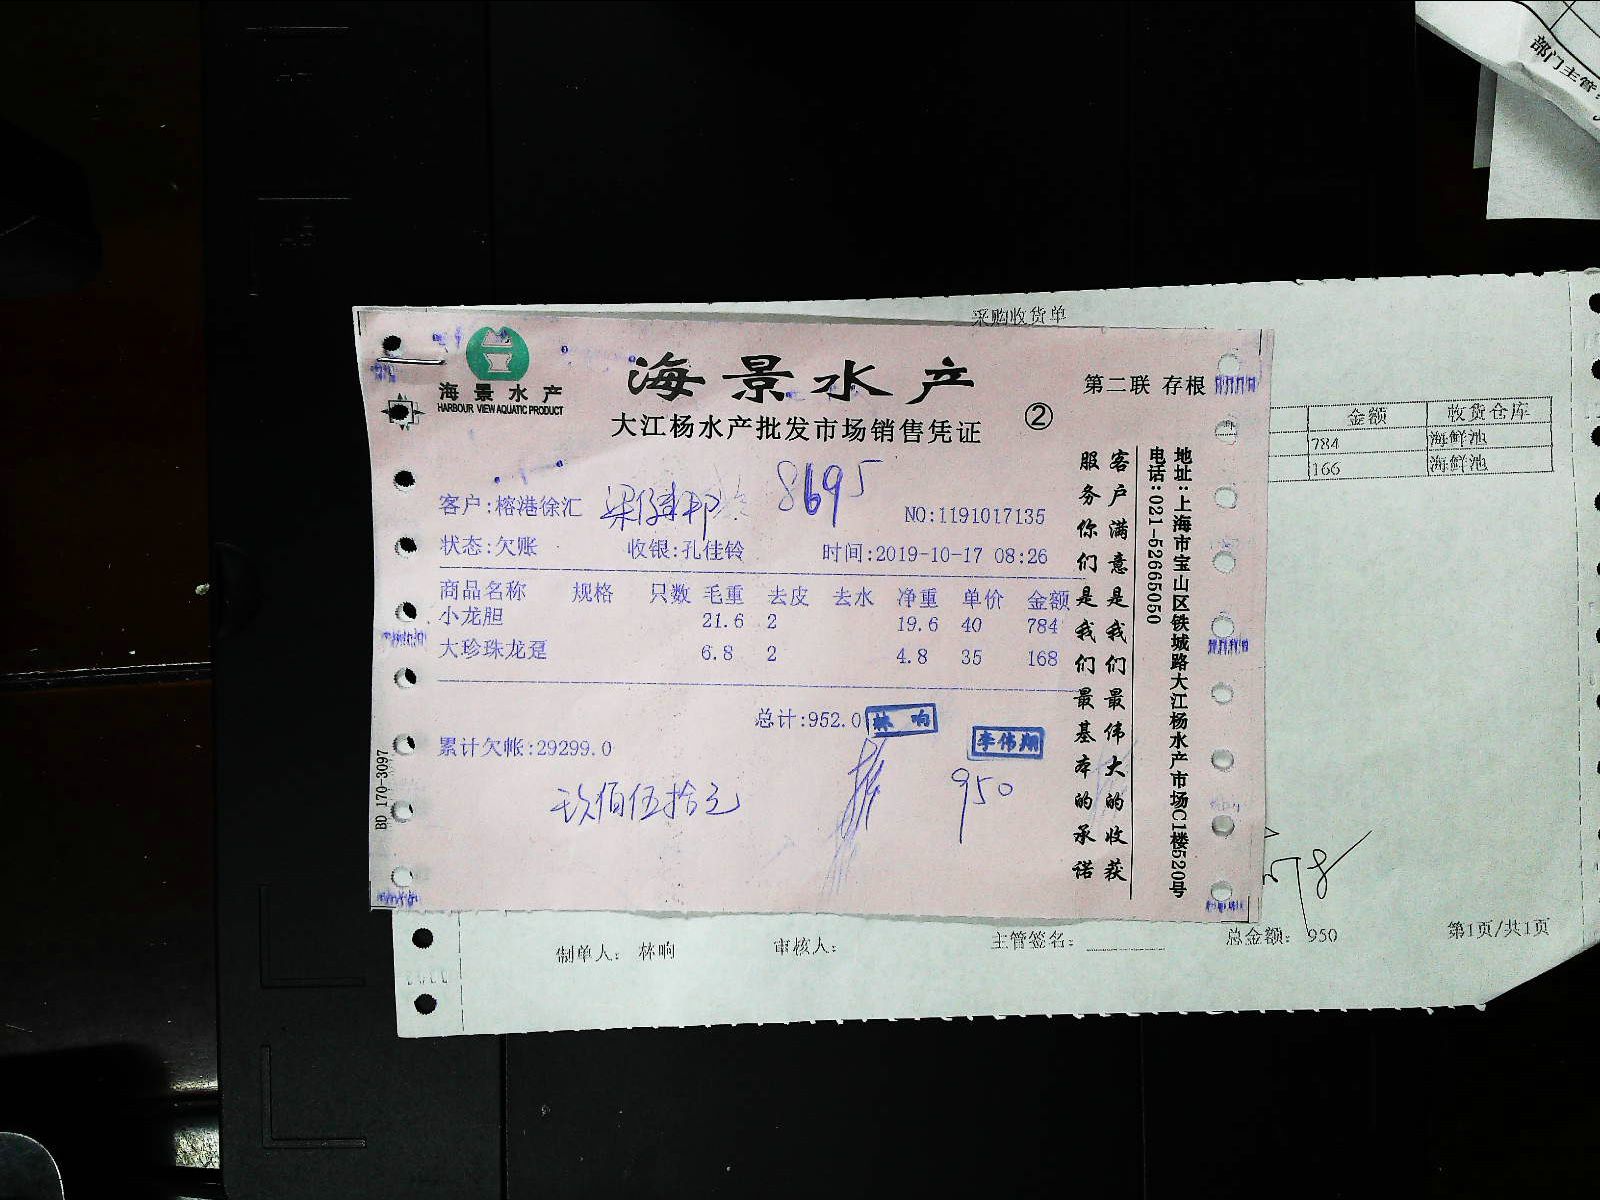 部门主管:
采购收货单
金额 收货仓库
784 海鲜池
166 海鲜池
海景水产
HARBOUR VIEW AQUATIC PRODUCT
海景水产
大江杨水产批发市场销售凭证
②
第二联 存根
8695
客户:榕港徐汇
NO:1191017135
状态:欠账 收银:孔佳铃 时间:2019-10-17 08:26
商品名称 规格 只数 毛重 去皮 去水 净重 单价 金额
小龙胆 21.6 2 19.6 40 784
大珍珠龙趸 6.8 2 4.8 35 168
总计:952.0
林响
李伟翔
累计欠帐:29299.0
玖佰伍拾元
950
客户满意是我们最伟大的收获
服务你们是我们最基本的承诺
地址:上海市宝山区铁城路大江杨水产市场C1楼520号
电话:021-52665050
BD 170-3097
制单人: 林响 审核人: 主管签名: 总金额: 950 第1页/共1页